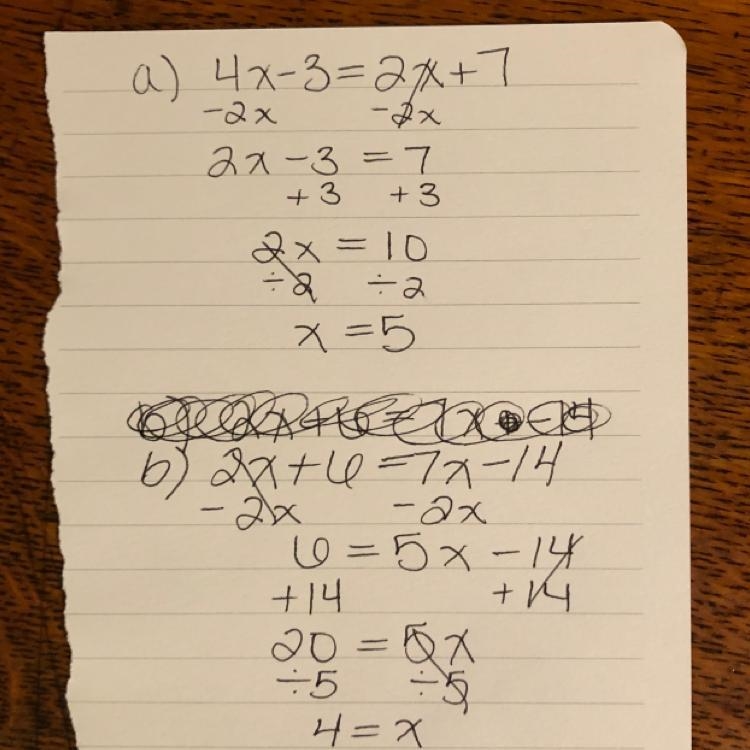 a) 4x-3=2x+7
-2x -2x
2x-3=7
+3 +3
2x=10
÷2 ÷2
x=5
b) 2x+6=7x-14
b) 2x+6=7x-14
-2x -2x
6=5x-14
+14 +14
20=5x
÷5 ÷5
4=x